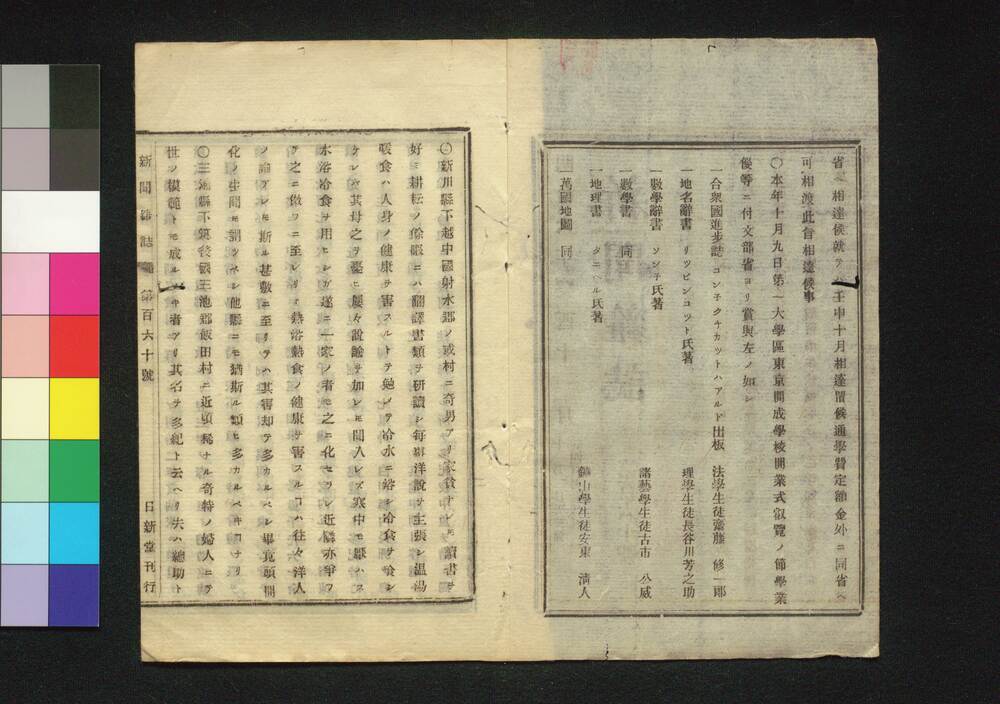 省ヘ相達候就テハ壬申十月相達置候通學費定額金外ニ同省ヘ
可相渡此旨相達候事
〇本年十月九日第一大學區東京開成學校開業式叡覽ノ節學業
優等ニ付文部省ヨリ賞與左ノ如シ
一合衆國進歩誌 コンチクチカツトハアルド出板 法學生徒齋藤 修一郎
一地名辭書 リツピンコツト氏著 理學生徒長谷川芳之助
一數學辭書 氏著
一數學書 同 諸藝學生徒古市 公威
一地理書 ダニヘル氏著
一萬國地圖 同 鑛山學生徒安東 清人
〇新川縣下越中國射水郡ノ或村ニ奇男アリ家貧ナレ𪜈讀書ヲ
好ミ耕耘ノ餘暇ニハ翻譯書類ヲ研讀シ毎事洋說ヲ主張シ温湯
暖食ハ人身ノ健康ヲ害スルトテ冷水ニ浴シ冷食ヲ喰シ
ケレバ其母之ヲ憂ヒ屢々說諭ヲ加レ𪜈聞入レズ寒中モ
水浴冷食ヲ用ヒシガ遂ニ一家ノ者モ之ニ化セラレ近隣亦爭フ
テ之ニ倣フニ至レリ熱浴熱食ノ健康ヲ害スルヿハ往々洋人
ノ論ズレ𪜈斯ル甚敷ニ至リテハ其害却テ多カルベシ畢竟頑開
化ノ中間𪜈謂ツベシ他縣ニモ猶斯ル類ヒ多カルベキヿナリ
〇三池縣下筑後國三池郡飯田村ニ近頃稀ナル奇特ノ婦人ニテ
世ノ模範トモ成ルベキ者アリ其名ヲ多紀ト云ヘリ夫ハ總助ト
新聞雜誌 第百六十號 日新堂刊行